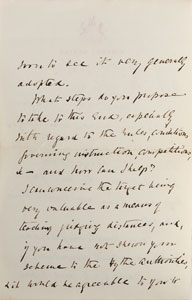 soon to see it very generally
adopted.
What steps do you propose
to take to this end, especially
with regard to the rules, conditions,
governing instruction, competitions,
& - and how can I help?
I can conceive the target being
very valuable as a means of
teaching judging distances, and,
if you have not shown your
scheme to the Hythe Authorities
it would be agreeable to you to